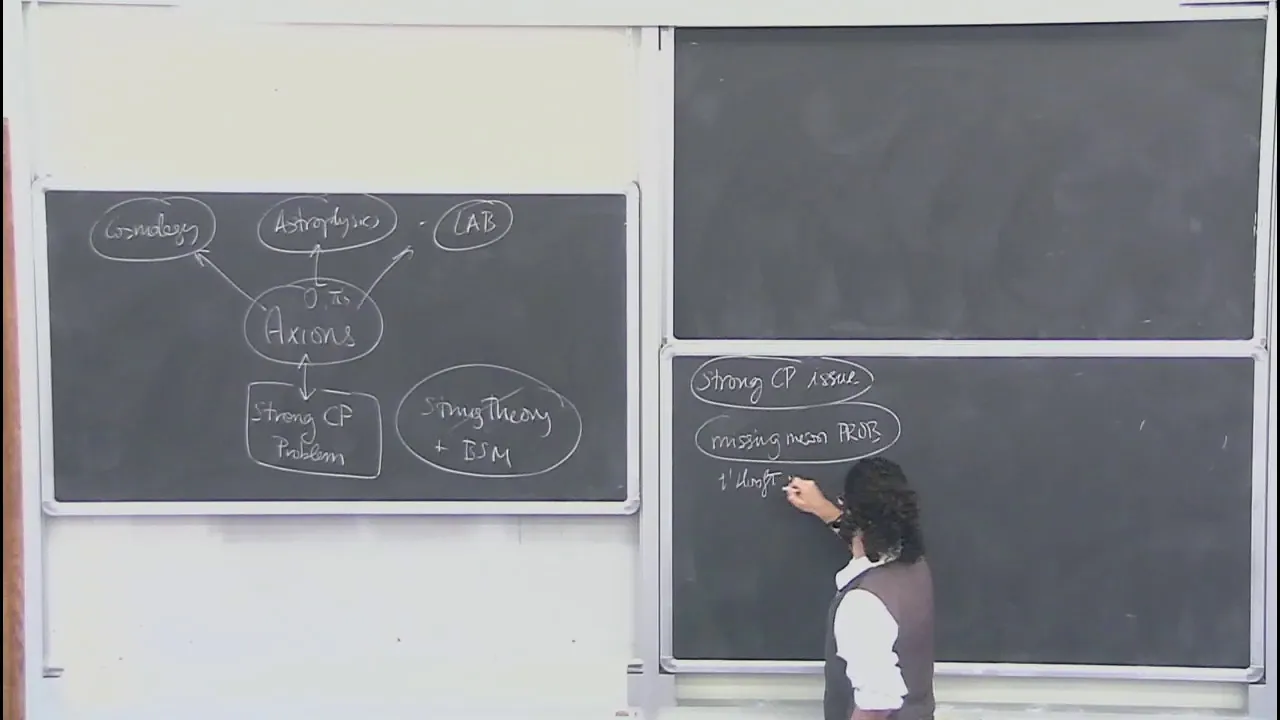 Cosmology Astrophysics LAB
Axions
Strong CP
Problem
String Theory
+ BSM
Strong CP issue
missing meson PROB
t'Hooft